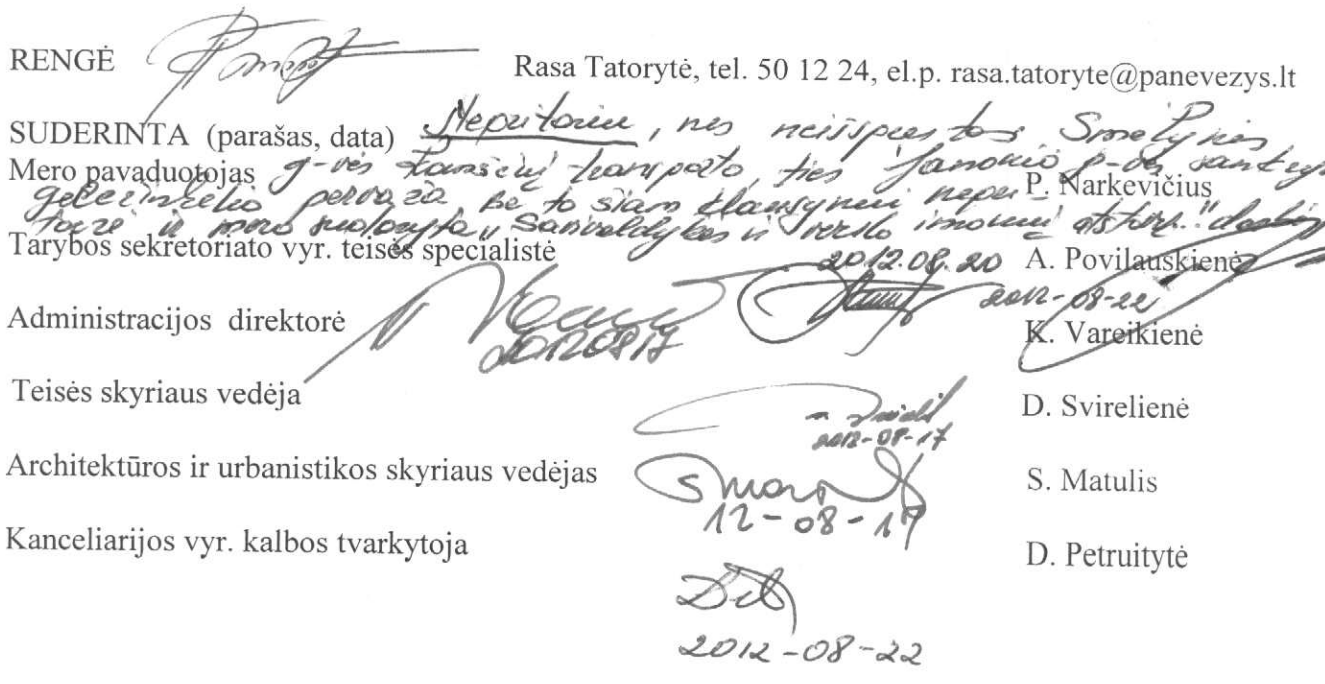 RENGĖ Rasa Tatorytė, tel. 50 12 24, el.p. rasa.tatoryte@panevezys.lt
SUDERINTA (parašas, data) Nepritariu, nes neišspręstas Smėlynės
Mero pavaduotojas g-vės transporto, ties Janonio P. Narkevičius
geležinkelio pervaža. Be to šiam klausymui
ir mero sudaryta „Savivaldybės ir verslo įmonių
Tarybos sekretoriato vyr. teisės specialistė 2012.08.20 A. Povilauskienė
2012-08-22
Administracijos direktorė 20120817 K. Vareikienė
Teisės skyriaus vedėja D. Svirelienė
2012-08-17
Architektūros ir urbanistikos skyriaus vedėjas S. Matulis
12-08-17
Kanceliarijos vyr. kalbos tvarkytoja D. Petruitytė
2012-08-22